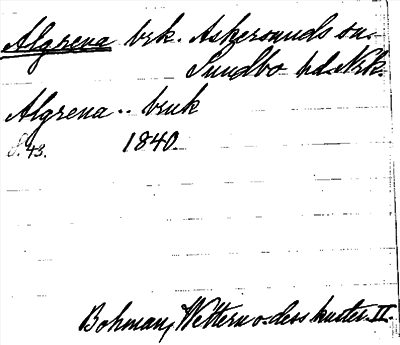 Algrena brk. Askersunds sn.
Sundbo hd. Nrk.
Algrena .. bruk
S. 43. 1840.
Bohman, Wettern o. dess kuster. II.